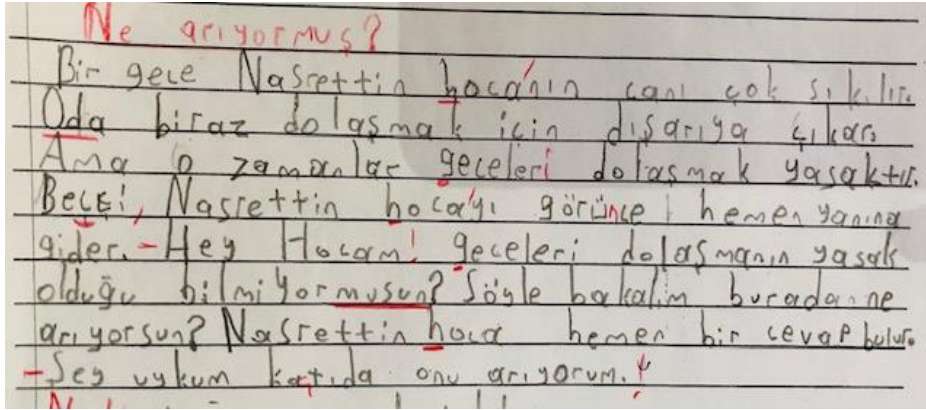 Ne arıyormuş?
Bir gece Nasrettin hoca'nın canı çok sıkılır.
Oda biraz dolaşmak için dışarıya çıkar.
Ama o zamanlar geceleri dolaşmak yasaktır.
Bekçi, Nasrettin hoca'yı görünce hemen yanına
gider. -Hey Hocam! geceleri dolaşmanın yasak
olduğu bilmiyormusun? Söyle bakalım buradan ne
arıyorsun? Nasrettin hoca hemen bir cevap bulur.
-Şey uykum kaçtıda onu arıyorum.